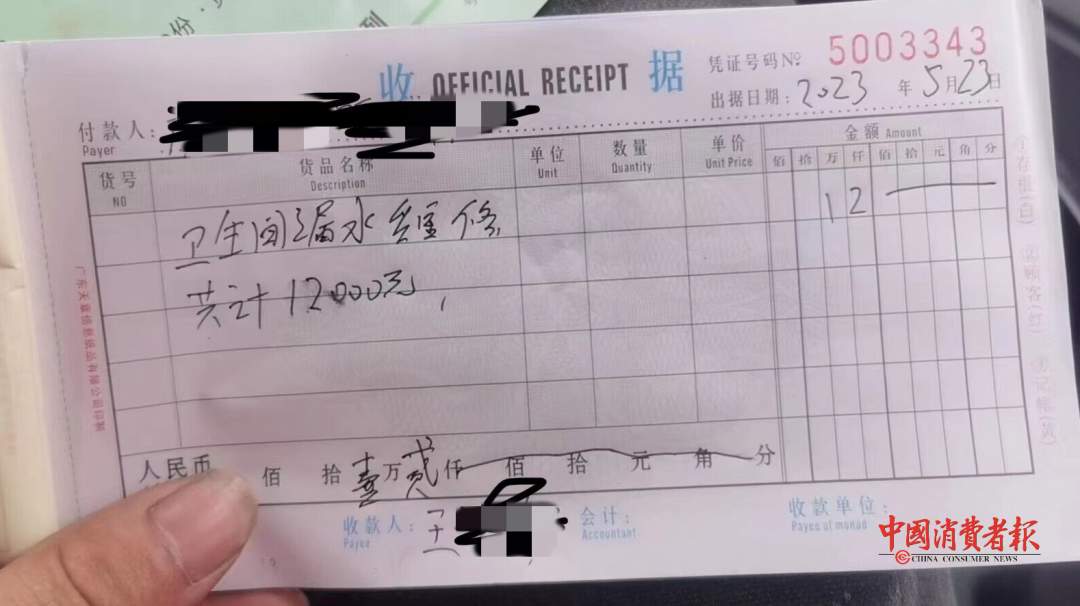 份
列
收 OFFICIAL RECEIPT 据
凭证号码№ 5003343
出据日期：2023年5月23日
付款人：
Payer
货号 NO
货品名称 Description
单位 Unit
数量 Quantity
单价 Unit Price
金额 Amount
佰 拾 万 仟 佰 拾 元 角 分
卫生间漏水维修 12
共计12000元，
人民币 佰 拾 壹万贰仟 佰 拾 元 角 分
收款人：
Payee
会计：
Accountant
收款单位：
①存根(白)
②顾客(红)
③记帐(黄)
中國消費者報
CHINA CONSUMER NEWS